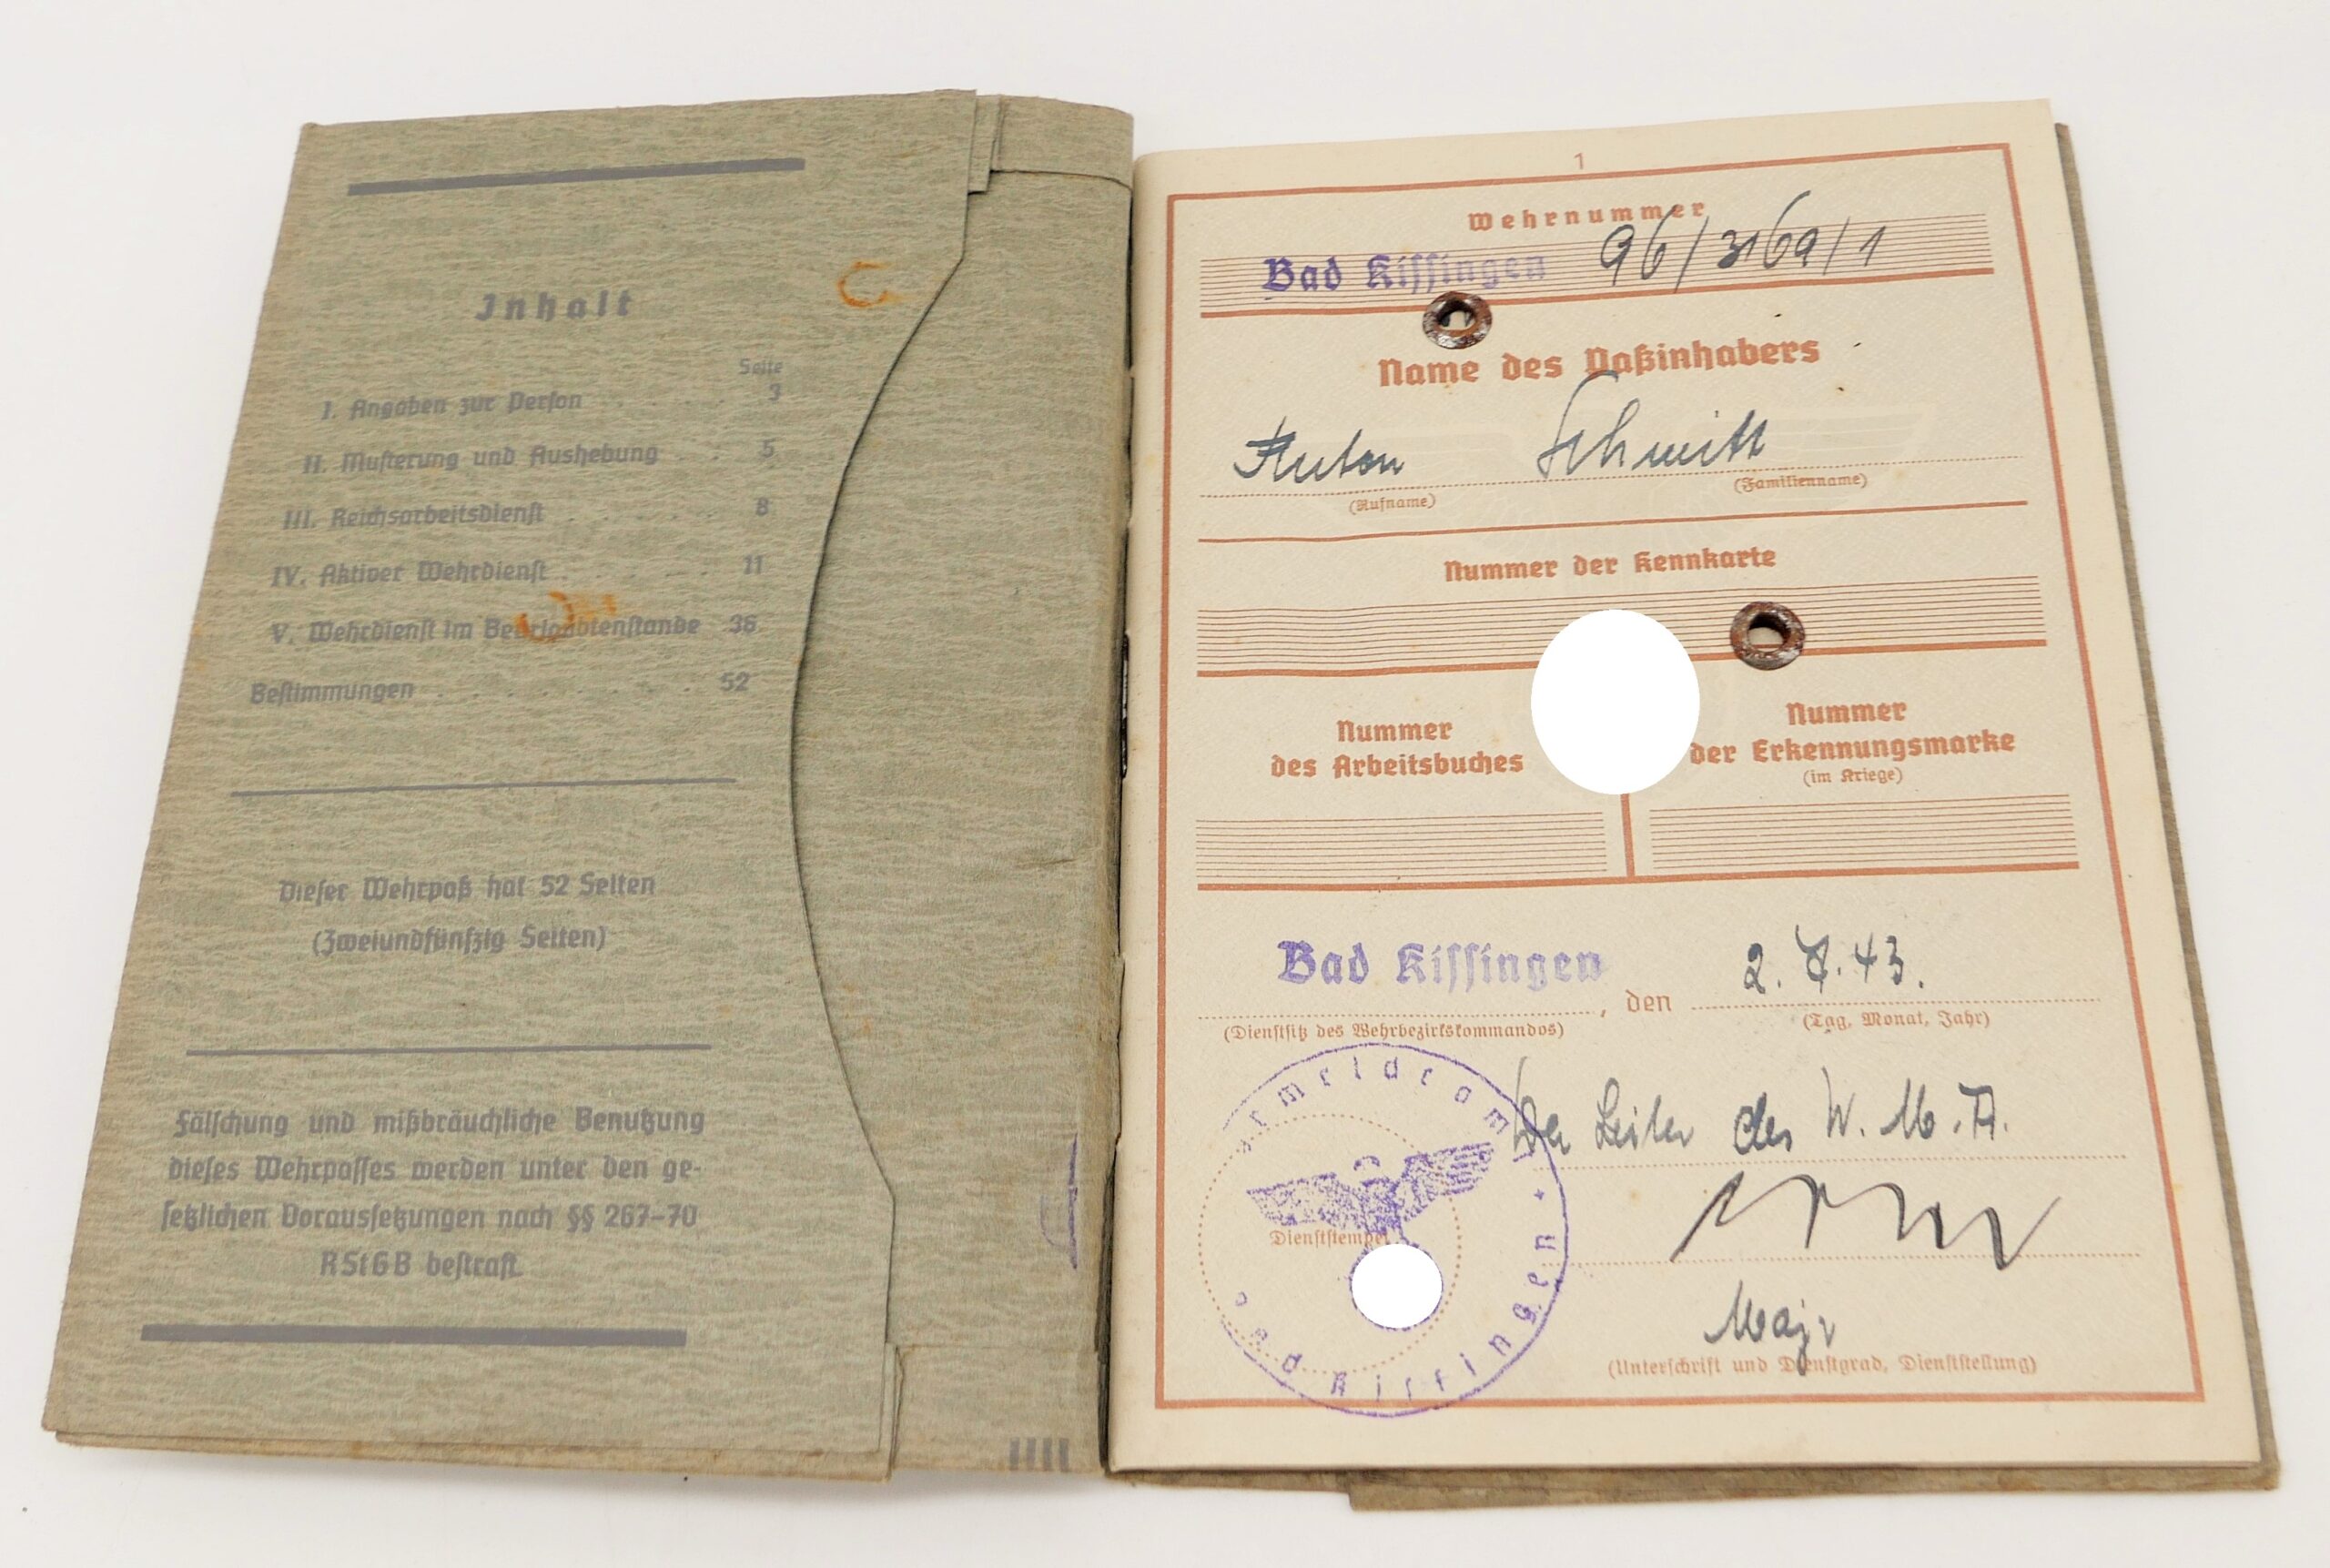 Inhalt
Seite
I. Angaben zur Person . . . . . . 3
II. Musterung und Aushebung . . . 5
III. Reichsarbeitsdienst . . . . . . 8
IV. Aktiver Wehrdienst . . . . . . 11
V. Wehrdienst im Beurlaubtenstande 36
Bestimmungen . . . . . . . . 52
Dieser Wehrpaß hat 52 Seiten
(Zweiundfünfzig Seiten)
Fälschung und mißbräuchliche Benutzung
dieses Wehrpasses werden unter den ge-
setzlichen Voraussetzungen nach §§ 267–70
RStGB bestraft.
1
Wehrnummer
Bad Kissingen 96/3169/1
Name des Paßinhabers
Anton Schmitt
(Rufname) (Familienname)
Nummer der Kennkarte
Nummer
des Arbeitsbuches
Nummer
der Erkennungsmarke
(im Kriege)
Bad Kissingen, den 2. 7. 43.
(Dienstsitz des Wehrbezirkskommandos) (Tag, Monat, Jahr)
Der Leiter des W. M. A.
Dienststempel
Major
(Unterschrift und Dienstgrad, Dienststellung)
Bad Kissingen